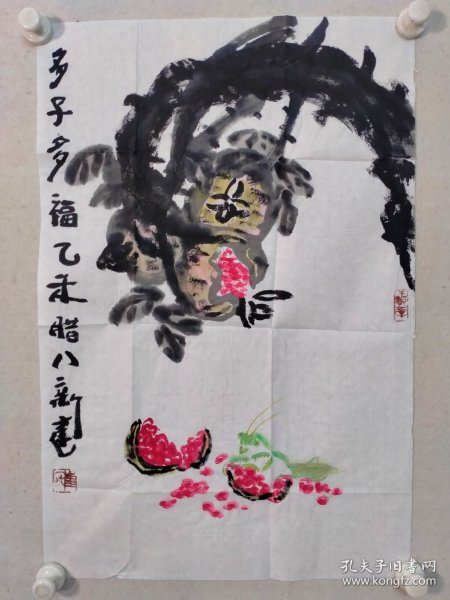 多子多福乙未腊八新建
孔夫子旧书网
www.kongfz.com